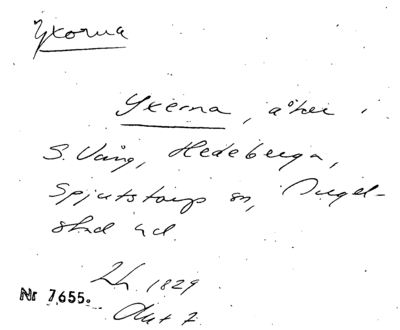 Yxorna
Yxerna, åker i
S. Vång, Hedeberga,
Spjutstorp sn, Ingel-
stad hd.
Lh. 1829
Nr 7655.
Akt 7